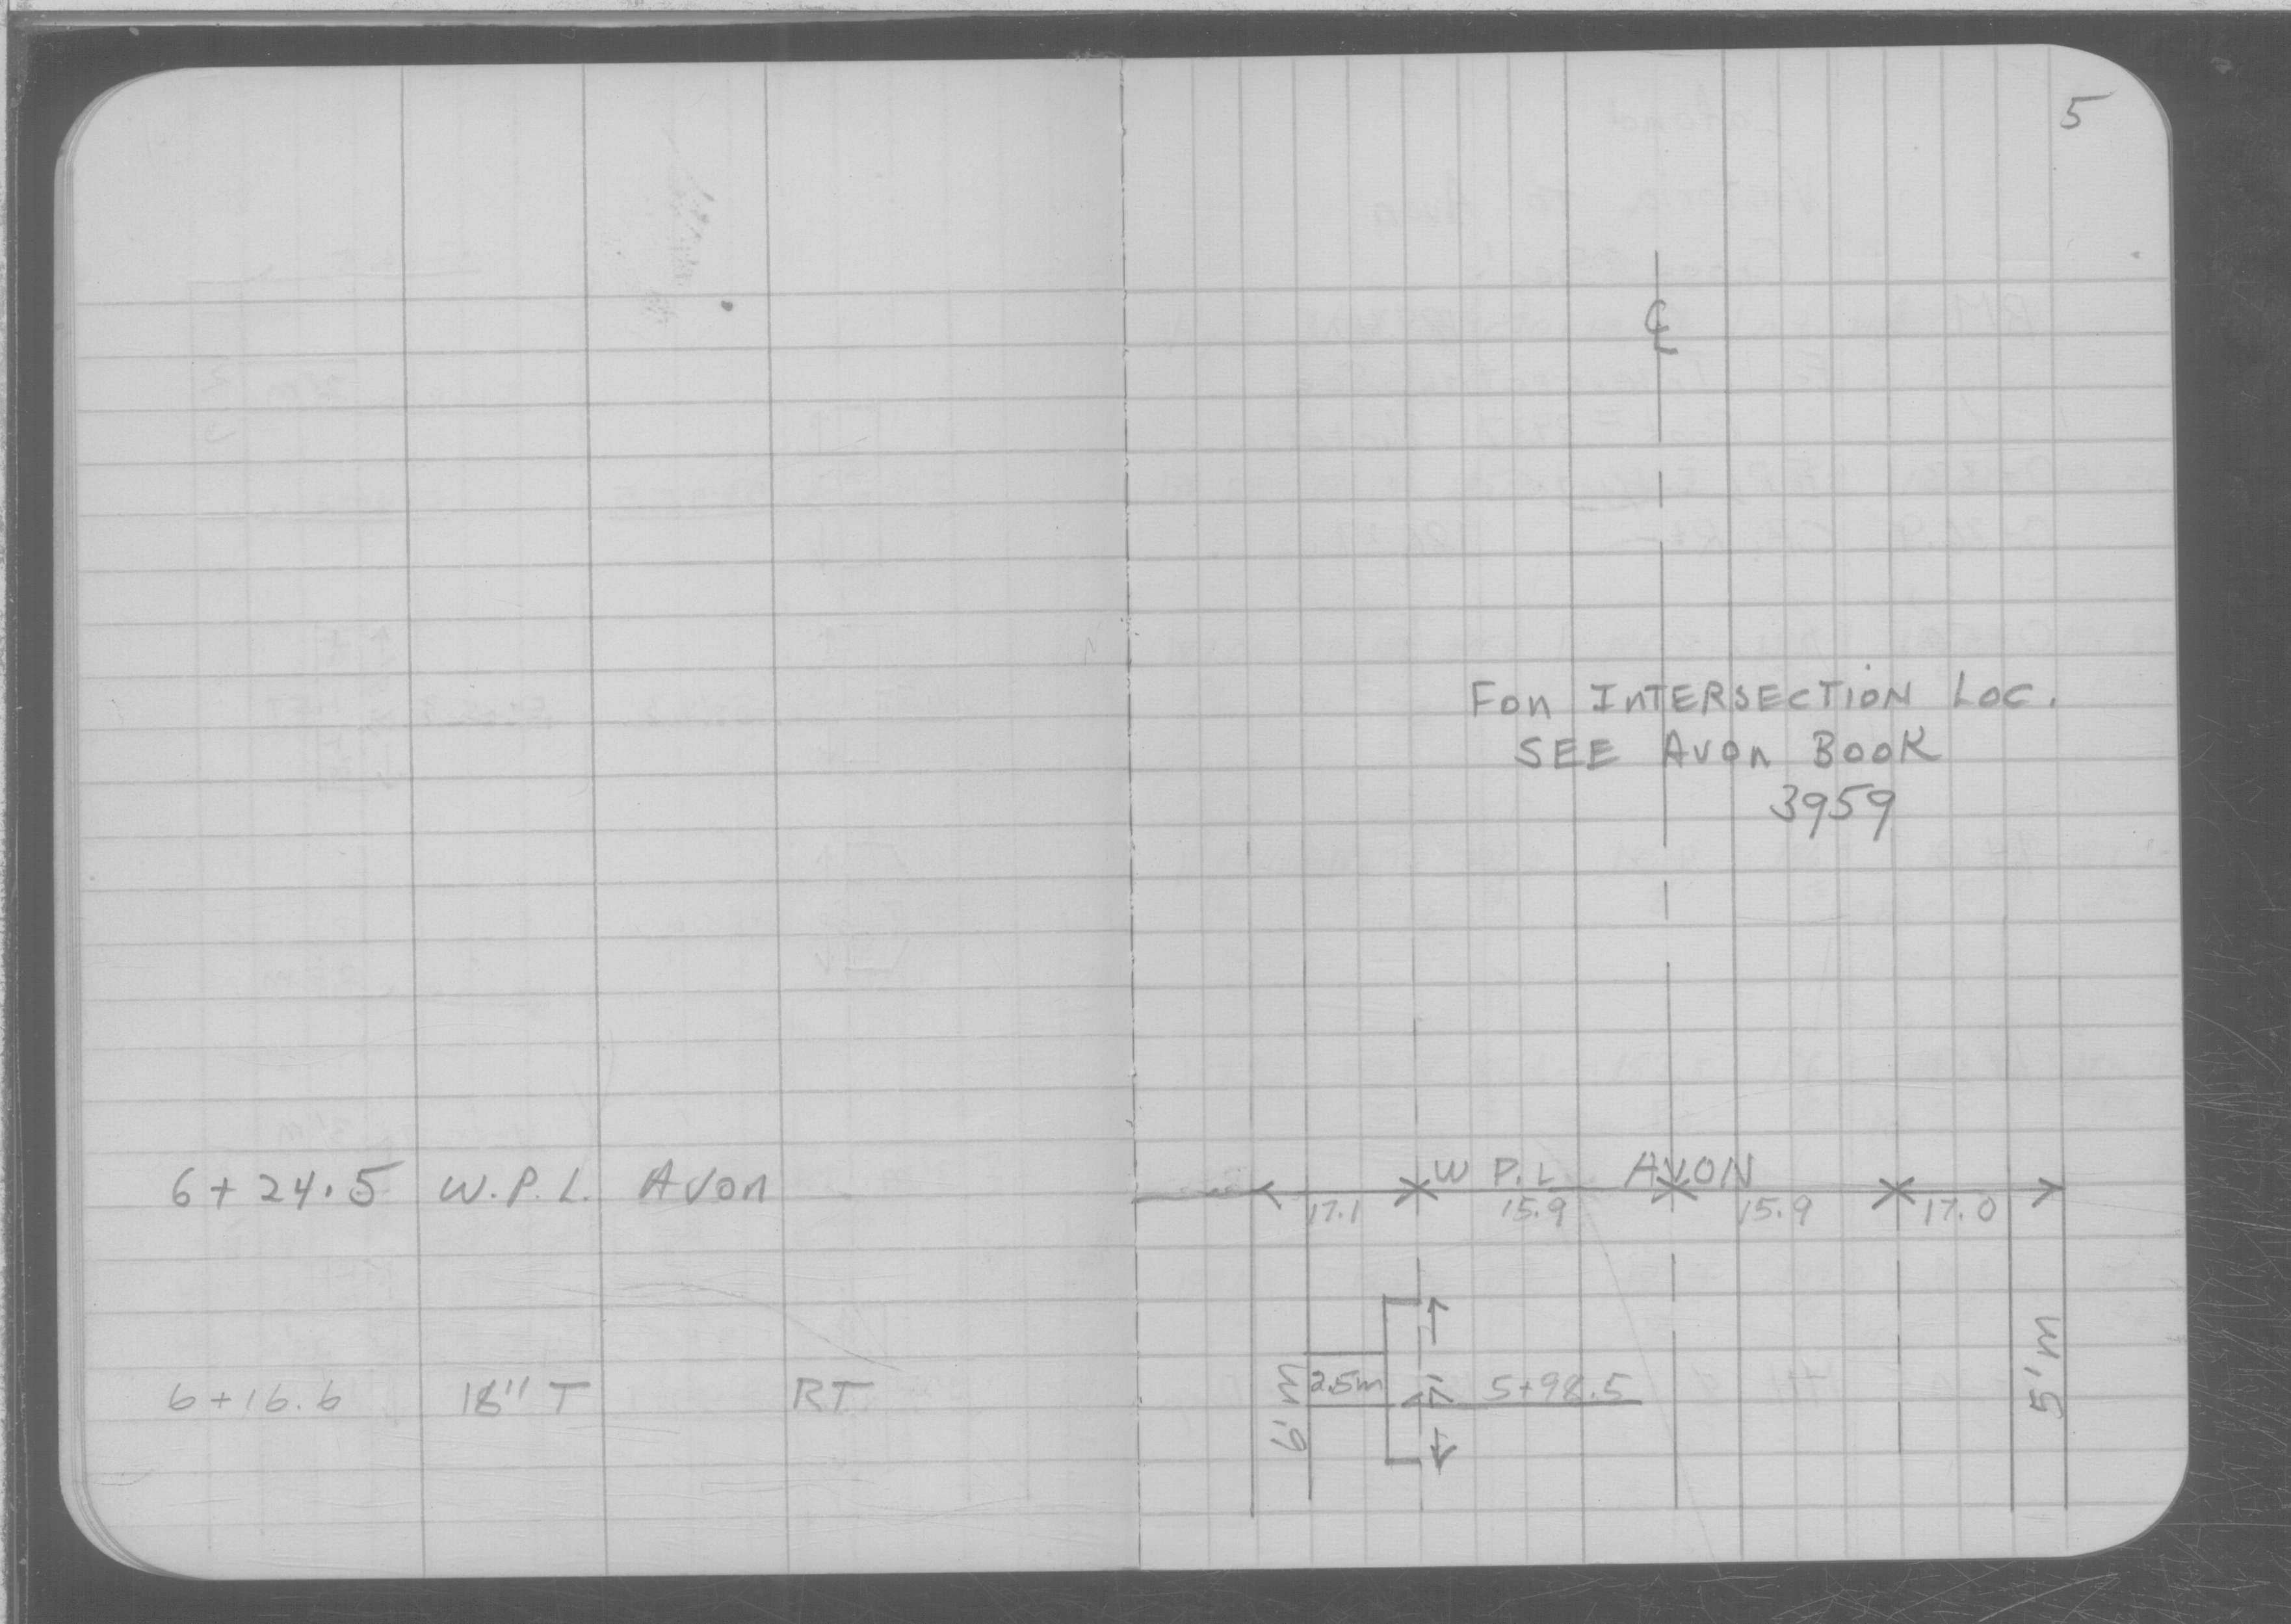 5
℄
Fon InTERSECTION Loc.
SEE Avon Book
3959
6+24.5 W.P.L. Avon
W P.L AVON
17.1 15.9 15.9 17.0
6+16.6 18" T RT
6'm
2.5m
5+98.5
5'm